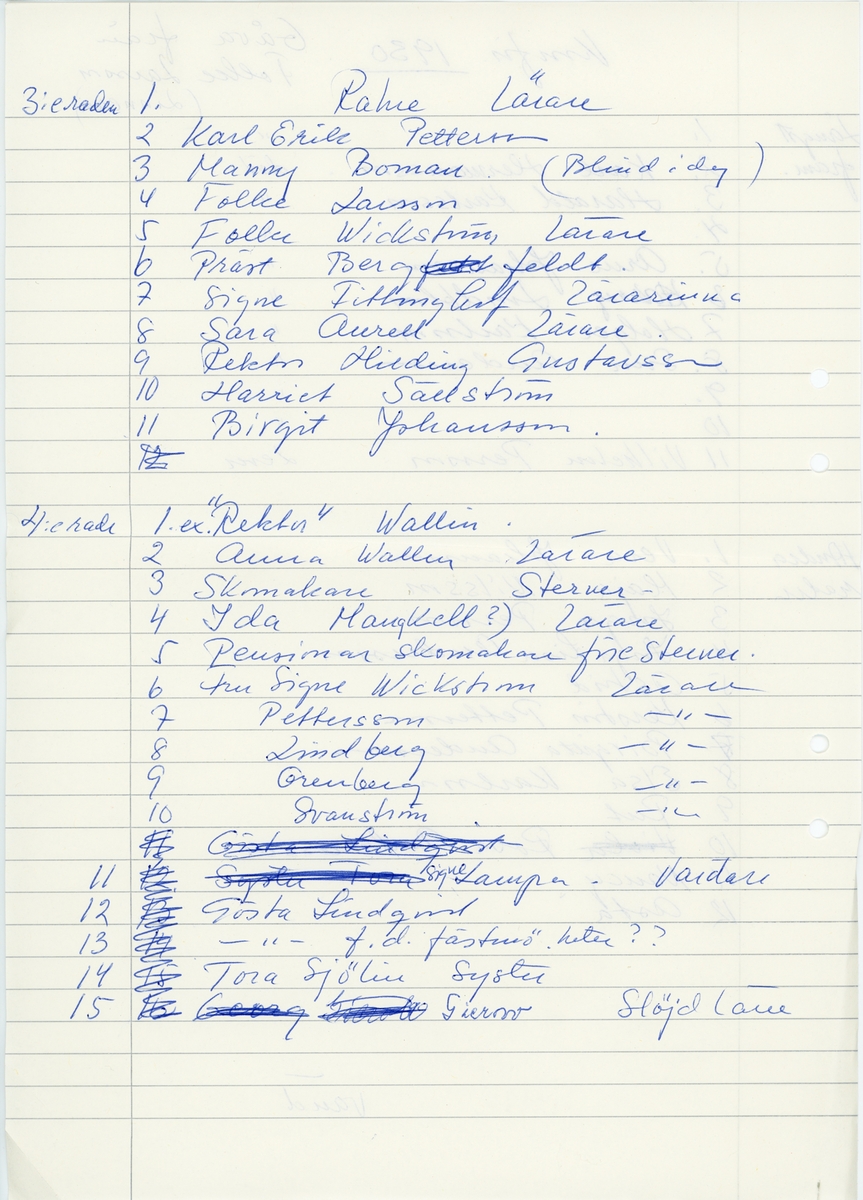 3:e raden 1. Rahne Lärare
2 Karl Erik Petterson
3 Manny Boman. (Blind i dag)
4 Folke Larsson
5 Folke Wickström Lärare
6 Präst Berg feldt.
7 Signe Fittinghof Lärarinna
8 Sara Aurell Lärare.
9 Rektor Hilding Gustavsson
10 Harriet Sällström
11 Birgit Johansson.
12
4:e rade 1. ex. "Rektor" Wallin.
2 Anna Wallin Lärare
3 Skomakare Sterner-
4 Ida Mangkell?) Lärare
5 Pensionär skomakare före Sterner.
6 fru Signe Wickström Lärare
7 Pettersson —"—
8 Lindberg —"—
9 Grenberg —"—
10 Svanström. —"—
Gösta Lindqvist
11 Syster Tora Signe Lampa. Vårdare
12 Gösta Lindqvist
13 —"— f.d. fästmö heter??
14 Tora Sjölin Syster
15 Georg Slöjd Lärare